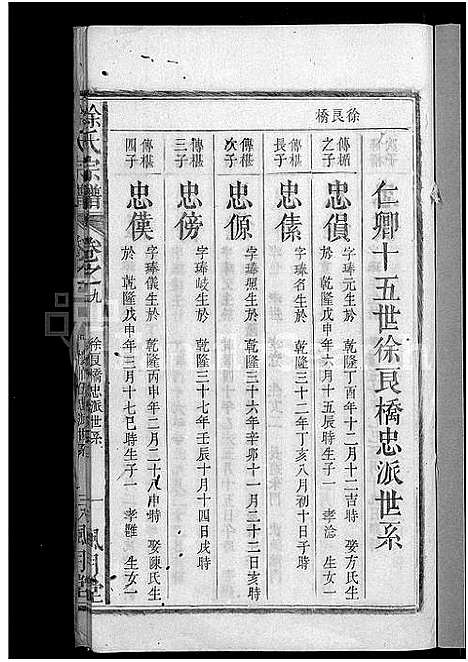 徐艮橋
仁卿十五世徐艮橋忠派世系
傳楯之子
忠㒹
字瑧元生於 乾隆丁酉年十二月十二吉時 娶方氏生
於 乾隆戊申六月十五辰時生子一 孝淰 生女一
傳椹長子
忠傃
字瑧名生於 乾隆三十二年丁亥八月初十日子時
次子
忠傆
字瑧照生於 乾隆三十六年辛卯十一月二十三日亥時
傳椹三子
忠傍
字瑧岐生於 乾隆三十七年壬辰十月十四日戌時
傳椹四子
忠僕
字瑧儀生於 乾隆丙申年二月二十八申時 娶陳氏生
於 乾隆戊申年三月十七巳時生子一 孝 生女一
徐氏宗譜
卷之九
徐艮橋忠派世系
一